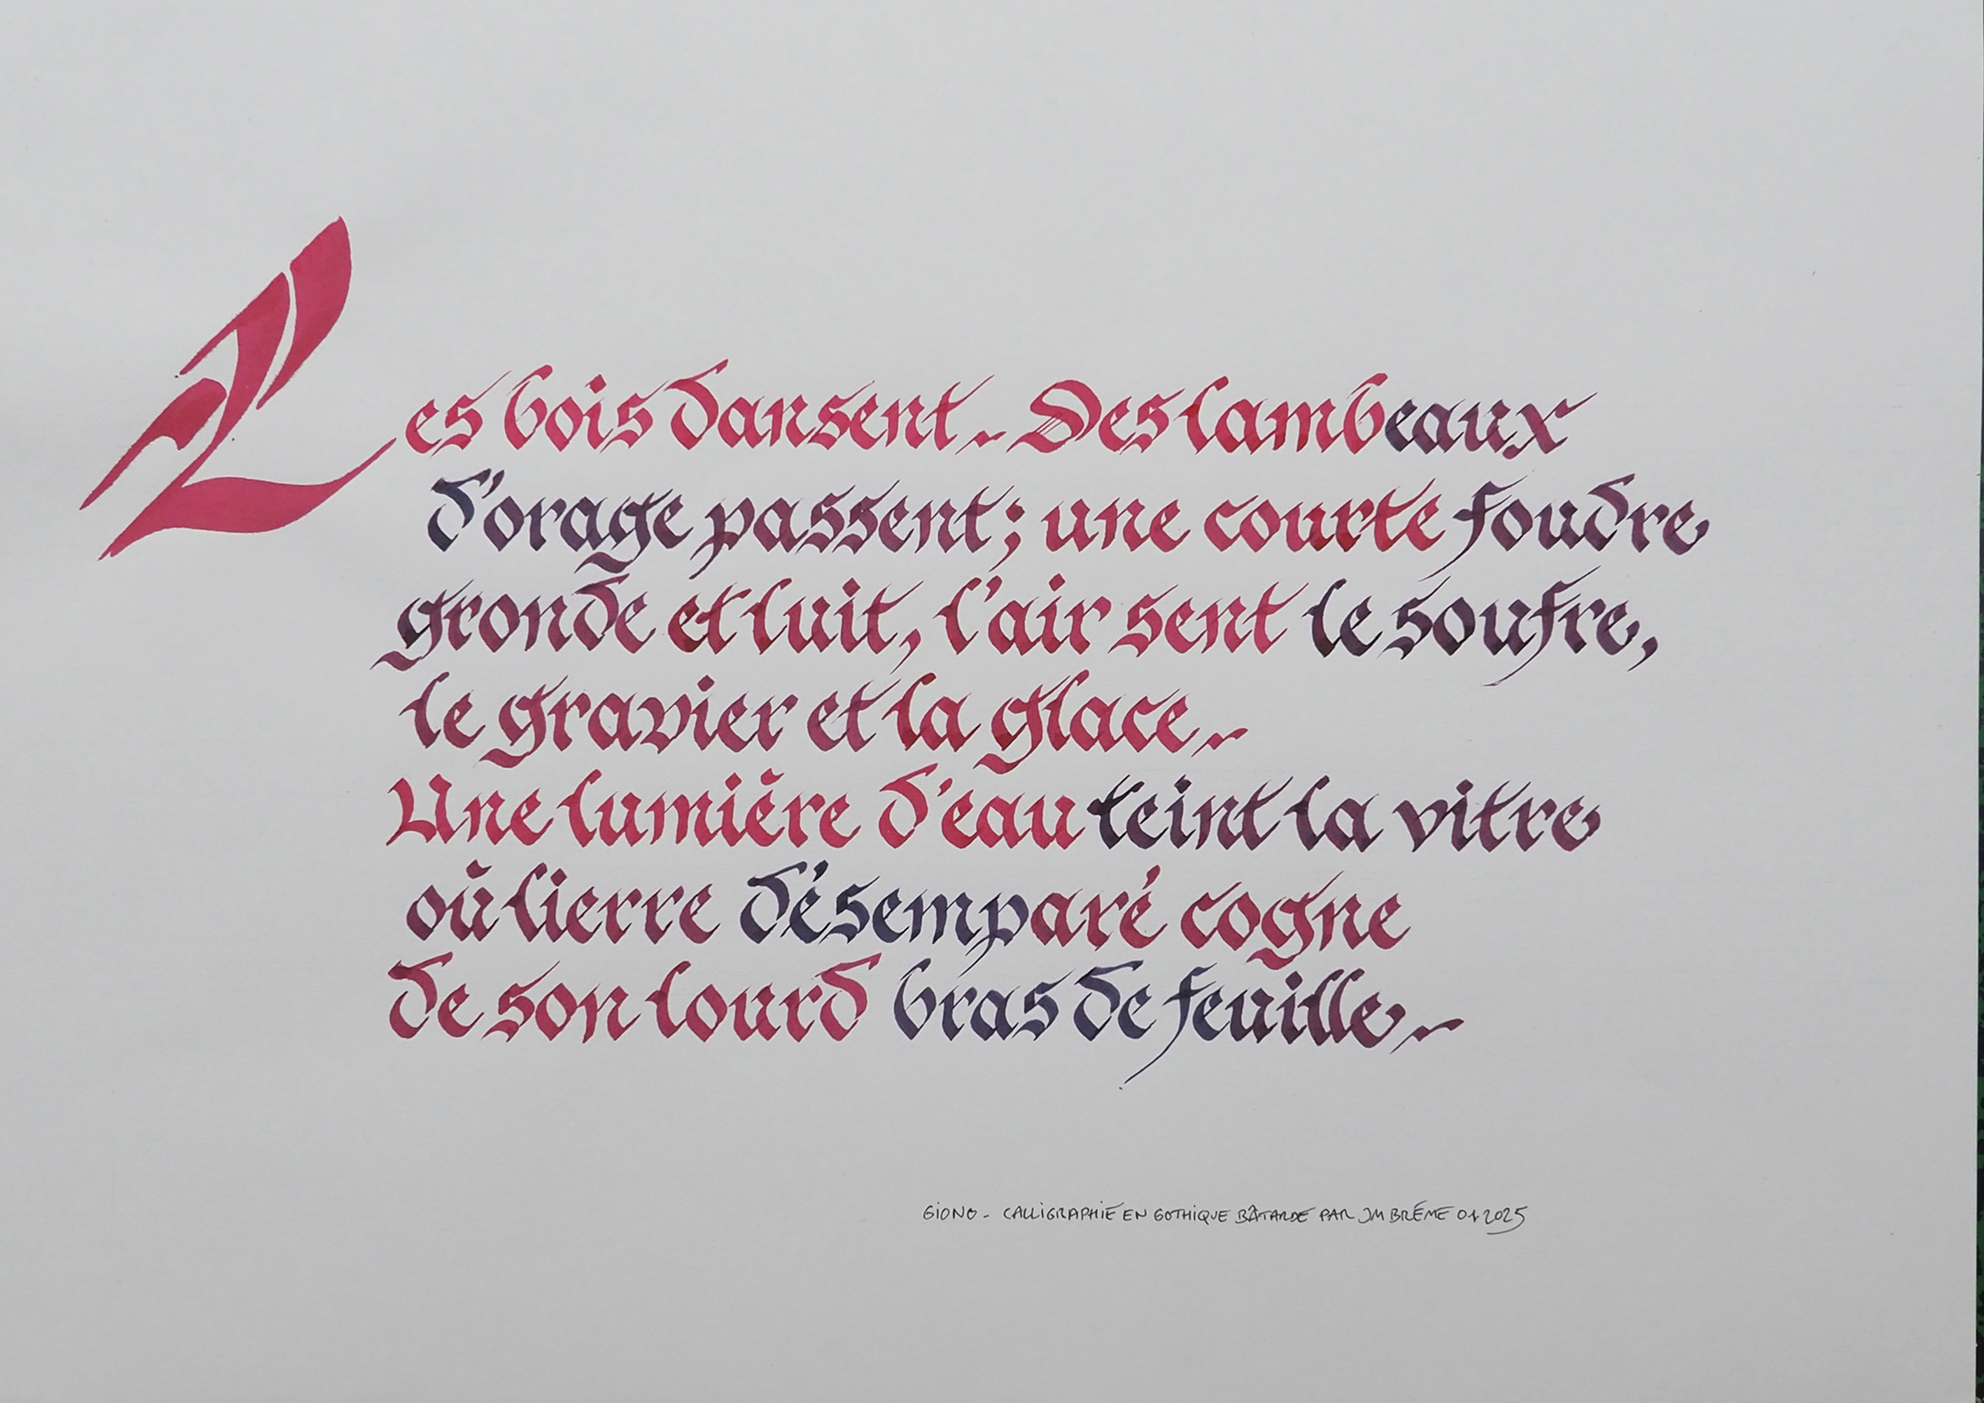 Les bois dansent. Des lambeaux
d'orage passent; une courte foudre
gronde et luit, l'air sent le soufre,
le gravier et la glace.
Une lumière d'eau teint la vitre
où lierre désemparé cogne
de son lourd bras de feuille.
GIONO - CALLIGRAPHIE EN GOTHIQUE BÂTARDE PAR JM BRÊME 01 2025